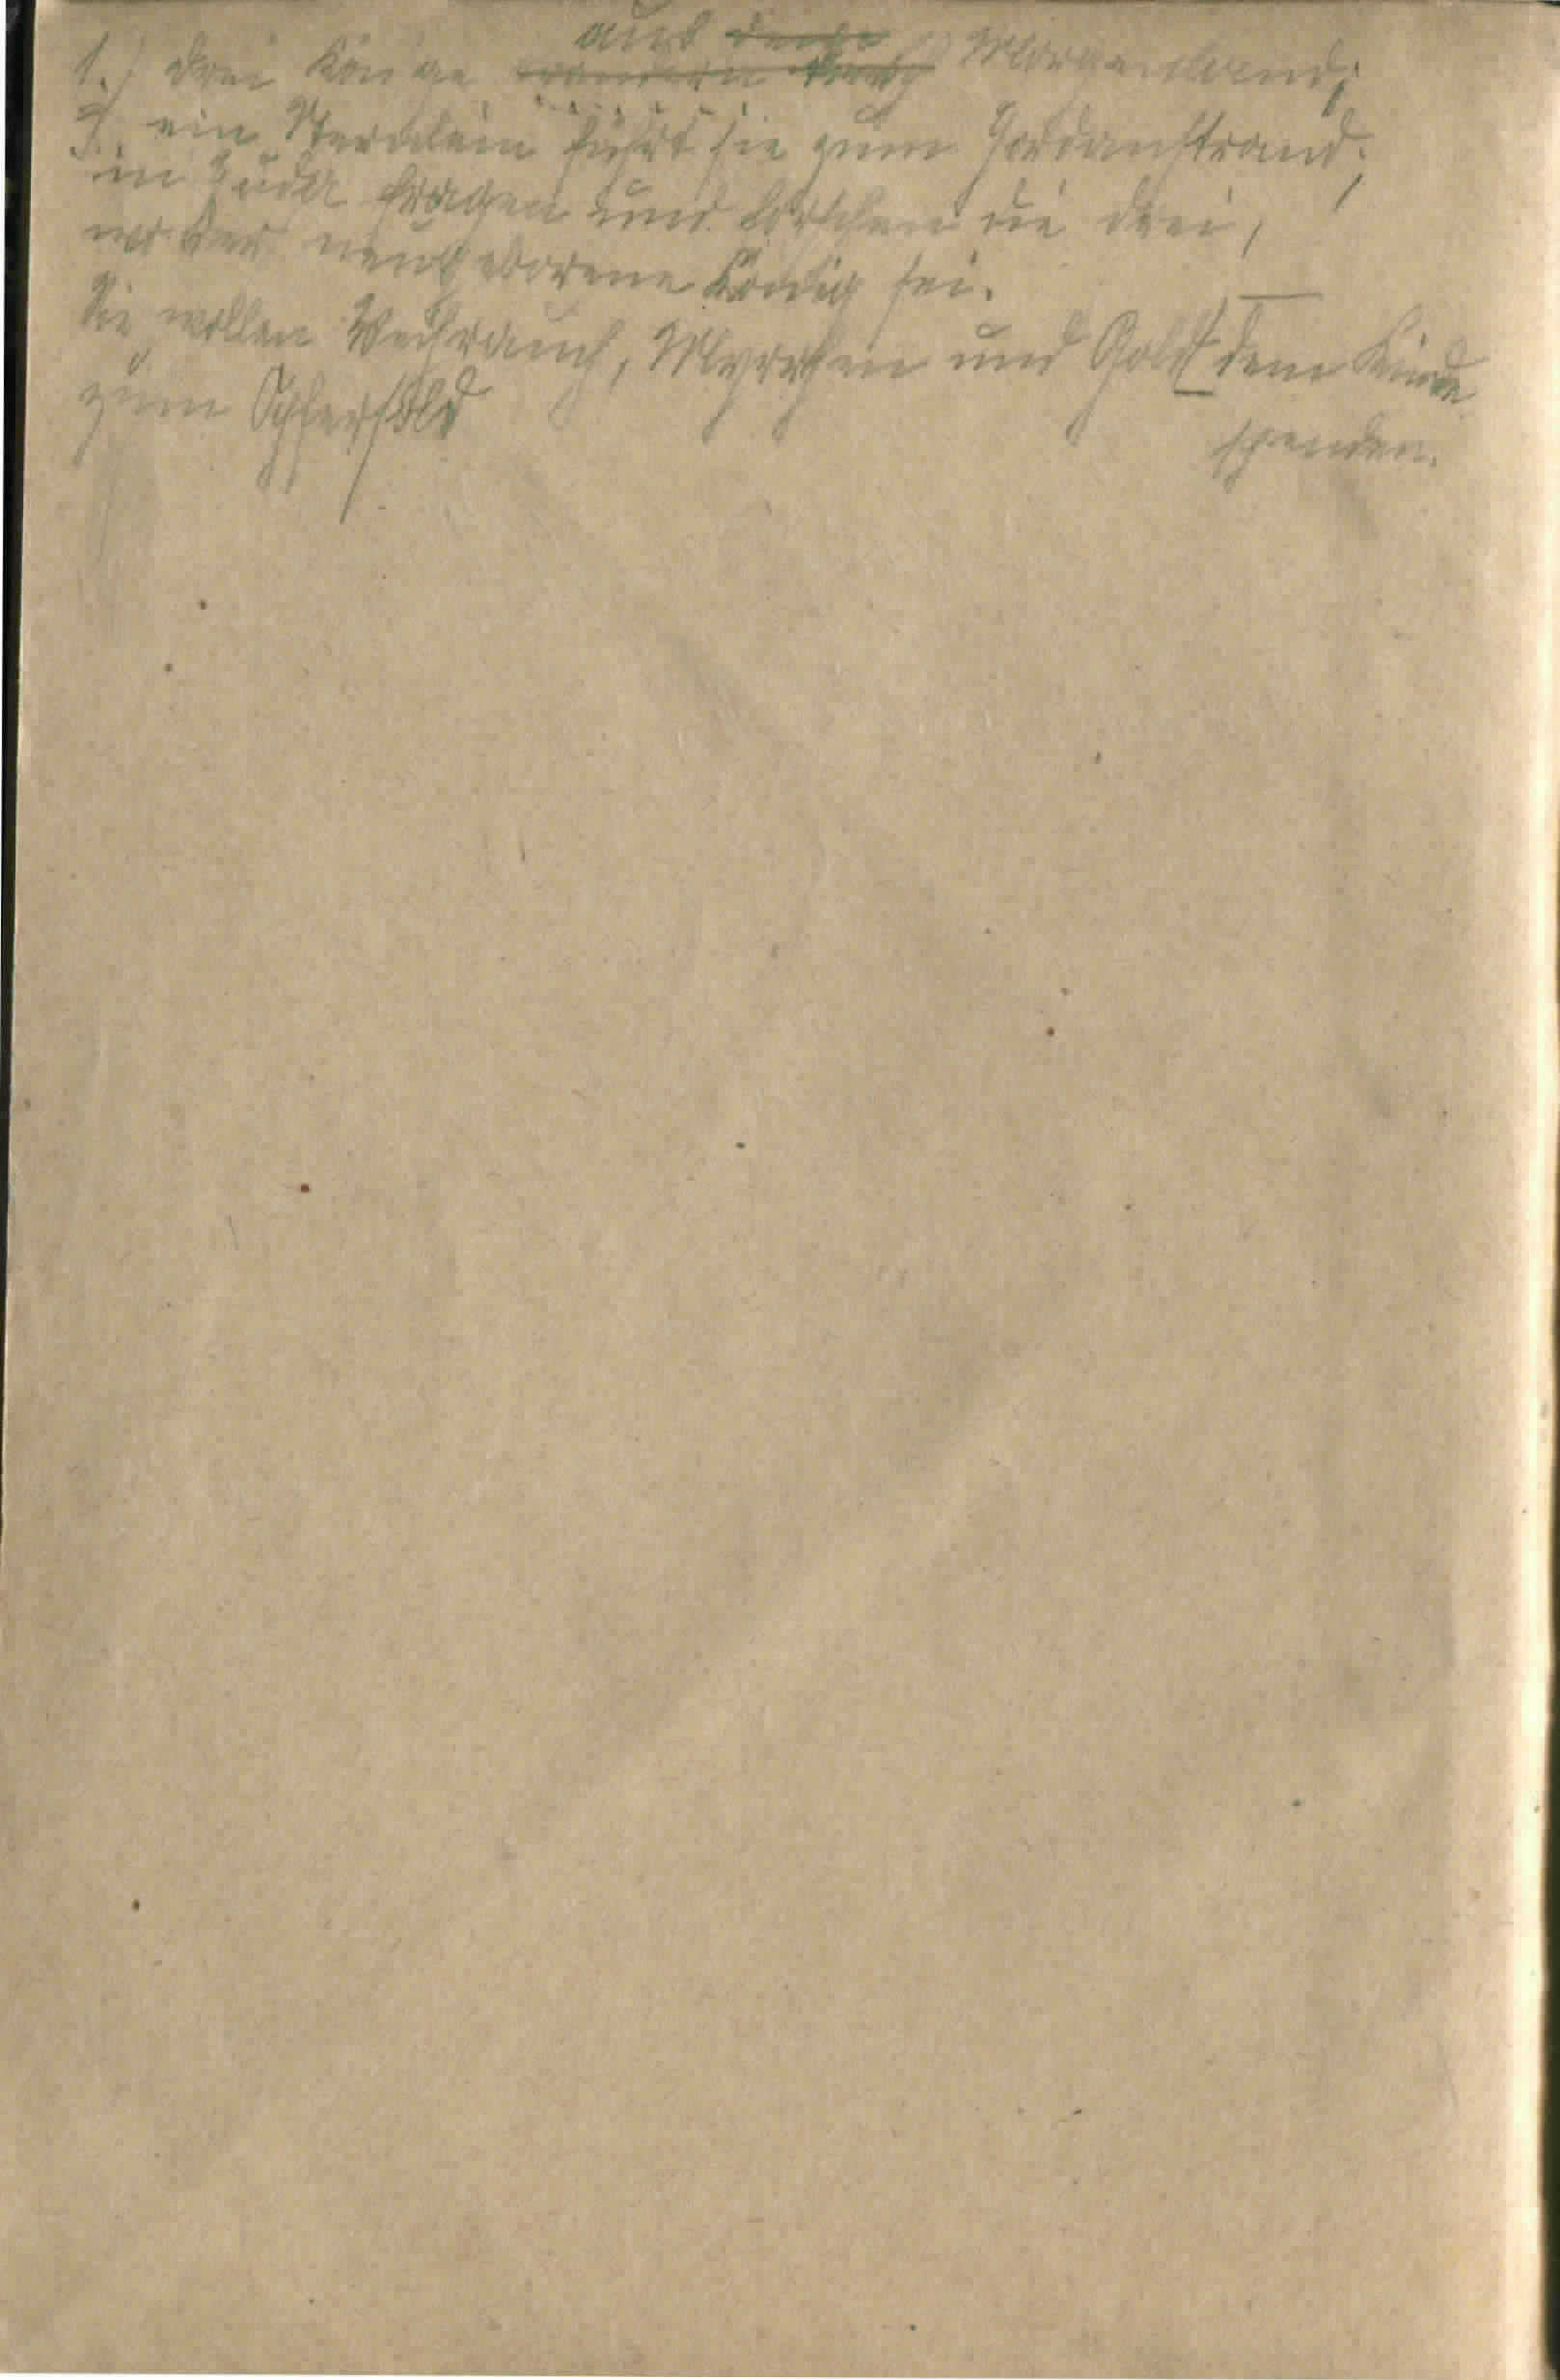 aus
1.) drei Könige wandern durch Morgenland;
ein Sternlein führt sie zum Jordanstrand;
in Juda fragen und forschen die drei,
wo der neugeborene König sei.
Sie wollen Weihrauch, Myrrhen und Gold dem Kinde
spenden.
zum Opfersold